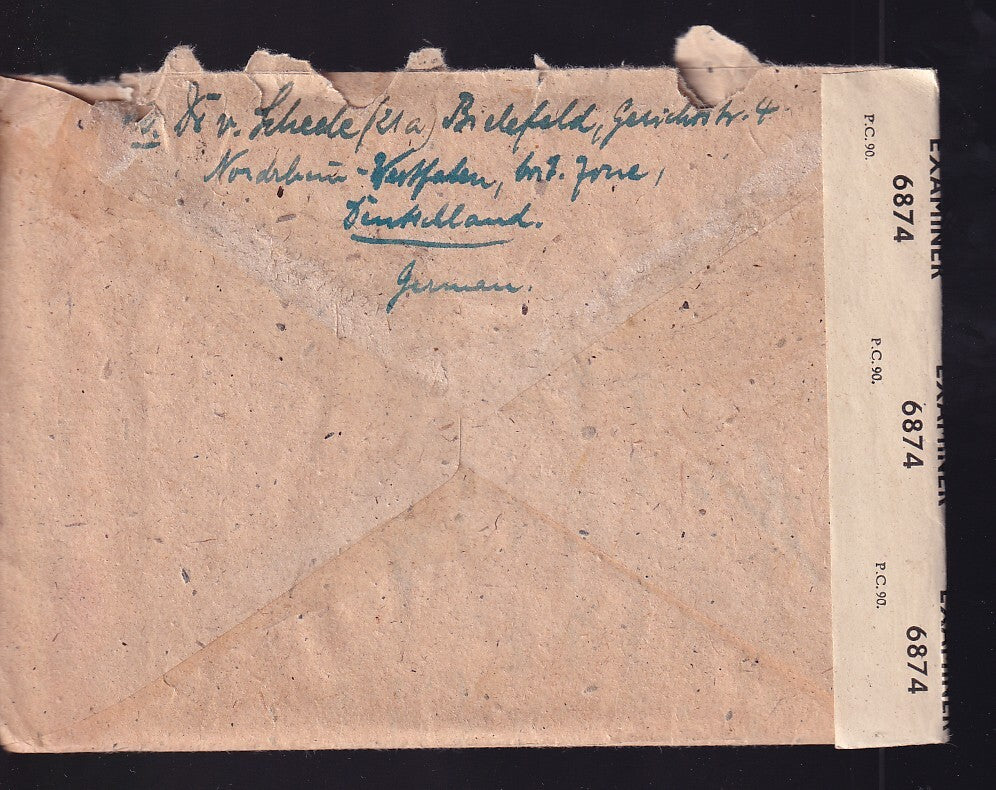 Dr v. Scheele (21a) Bielefeld, Gerichtstr. 4
Nordrhein-Westfalen, brit. Zone,
Deutschland.
German.
P.C. 90.
6874
EXAMINER
P.C. 90.
6874
EXAMINER
P.C. 90.
6874
EXAMINER